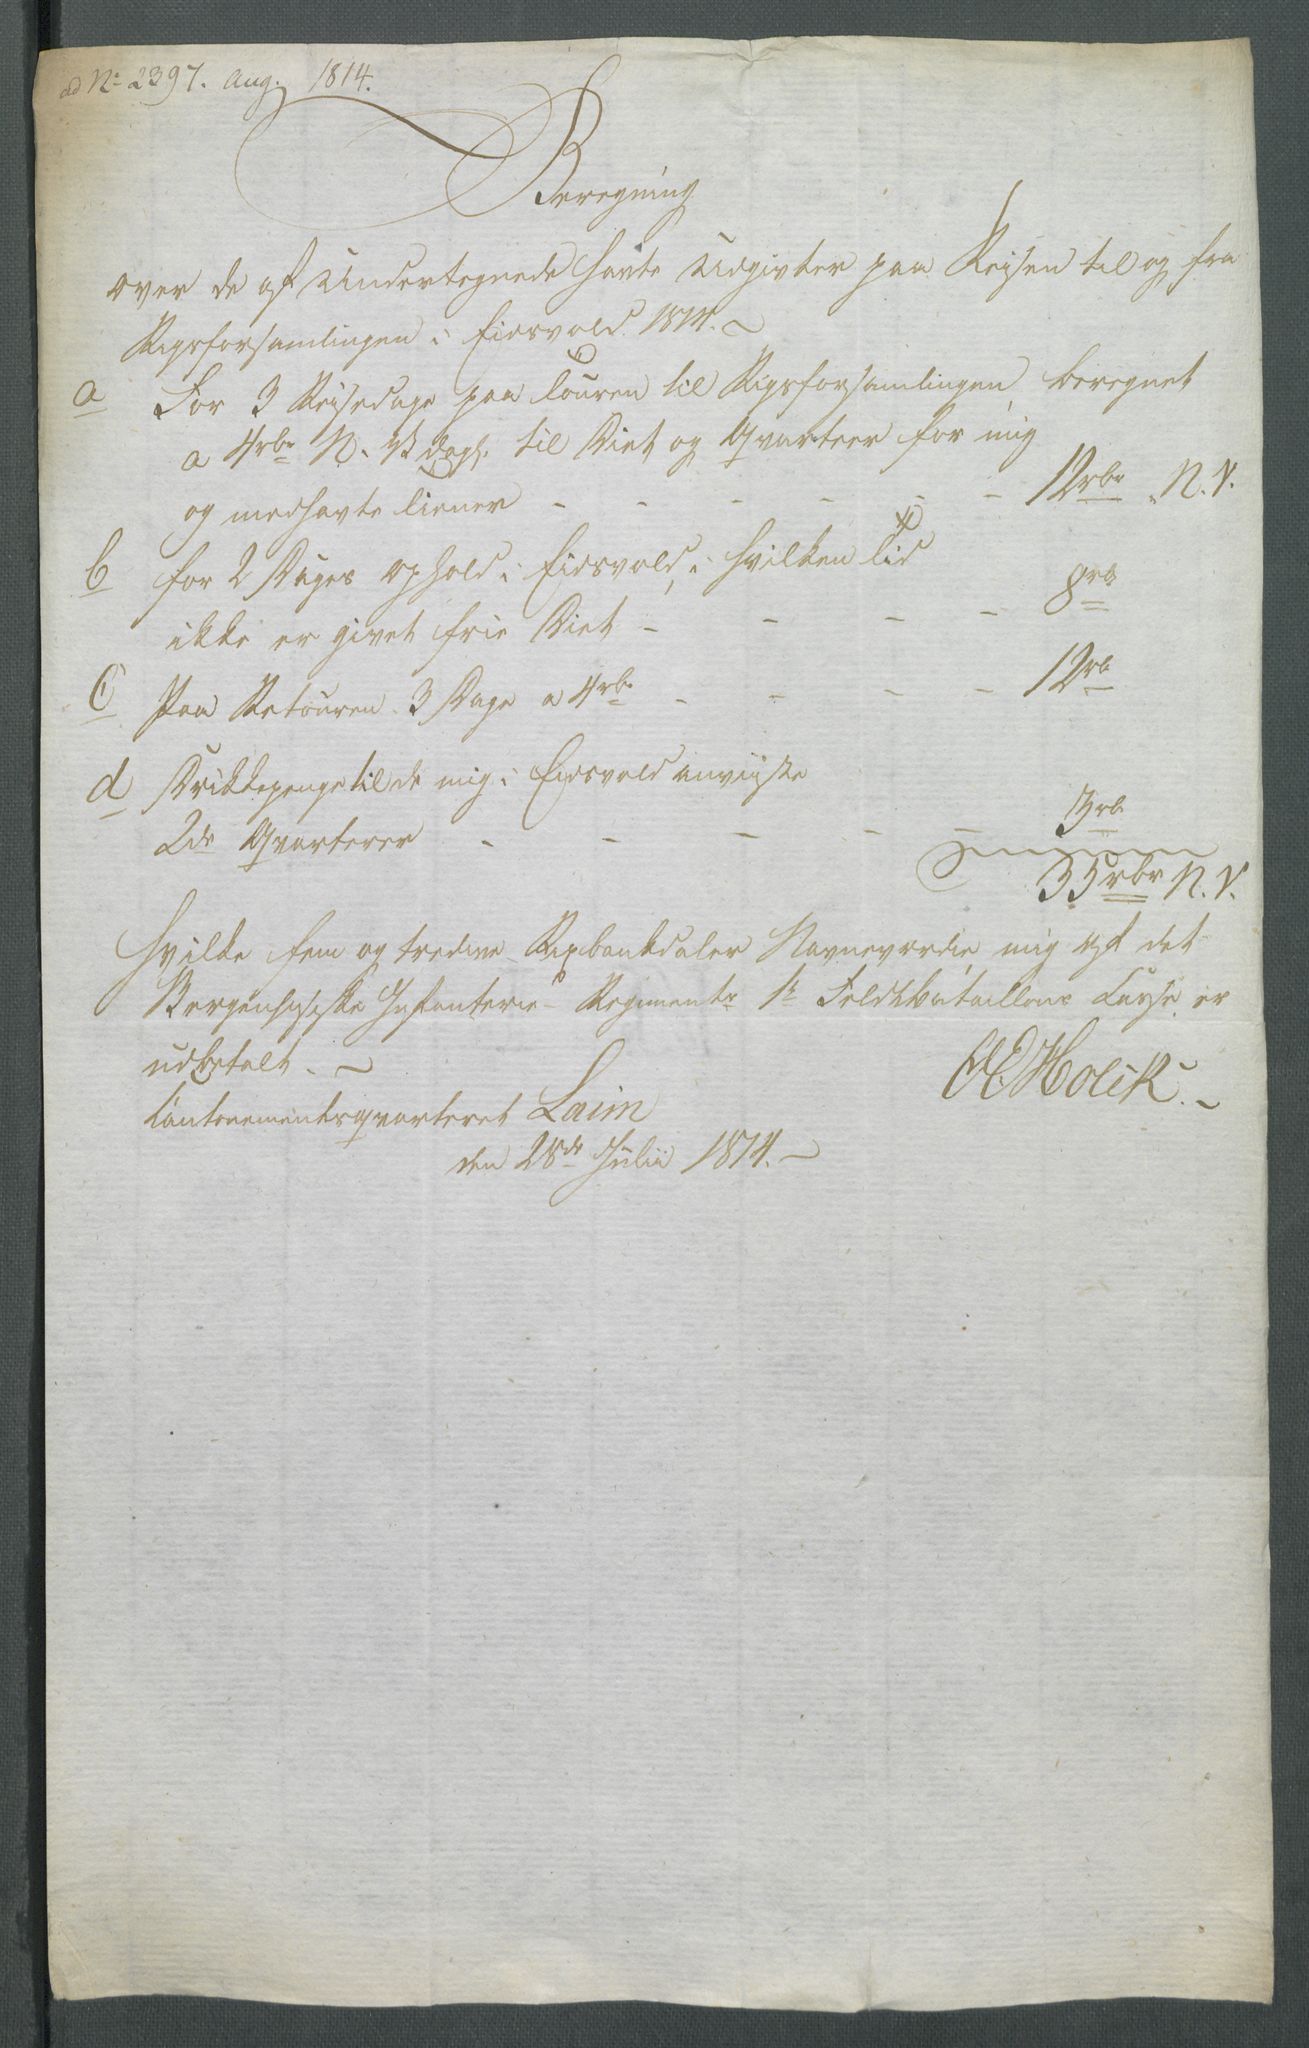 ad No 2397. Aug. 1814.
Beregning
over de af Undertegnede havte Udgivter paa Reisen til og fra
Rigsforsamlingen i Eidsvold 1814.
a For 3 Reisedage paa Touren til Rigsforsamlingen, beregnet
a 4rbr N. V. dagl. til Diet og Qvarteer for mig
og medhavte Tiener - - - - - - 12rbr N. V.
b for 2 Dages Ophold i Eidsvold, i hvilken Tid
ikke er givet frie Diet - - - - 8rb
C Paa Retouren 3 Dage a 4rb - - - - 12rb
d Drikkepenge til de mig i Eidsvold anviiste
2de Qvarterer - - - - - 3rb
35rbr N. V.
Hvilke fem og tredive Rigsbankdaler Navneværdie mig af det
Bergenhusiske Infanterie-Regiments 1te Feldtbataillons Casse er
udbetalt.
Cantonementsqvarteret Laim
A. Holck.
den 28de Julii 1814.